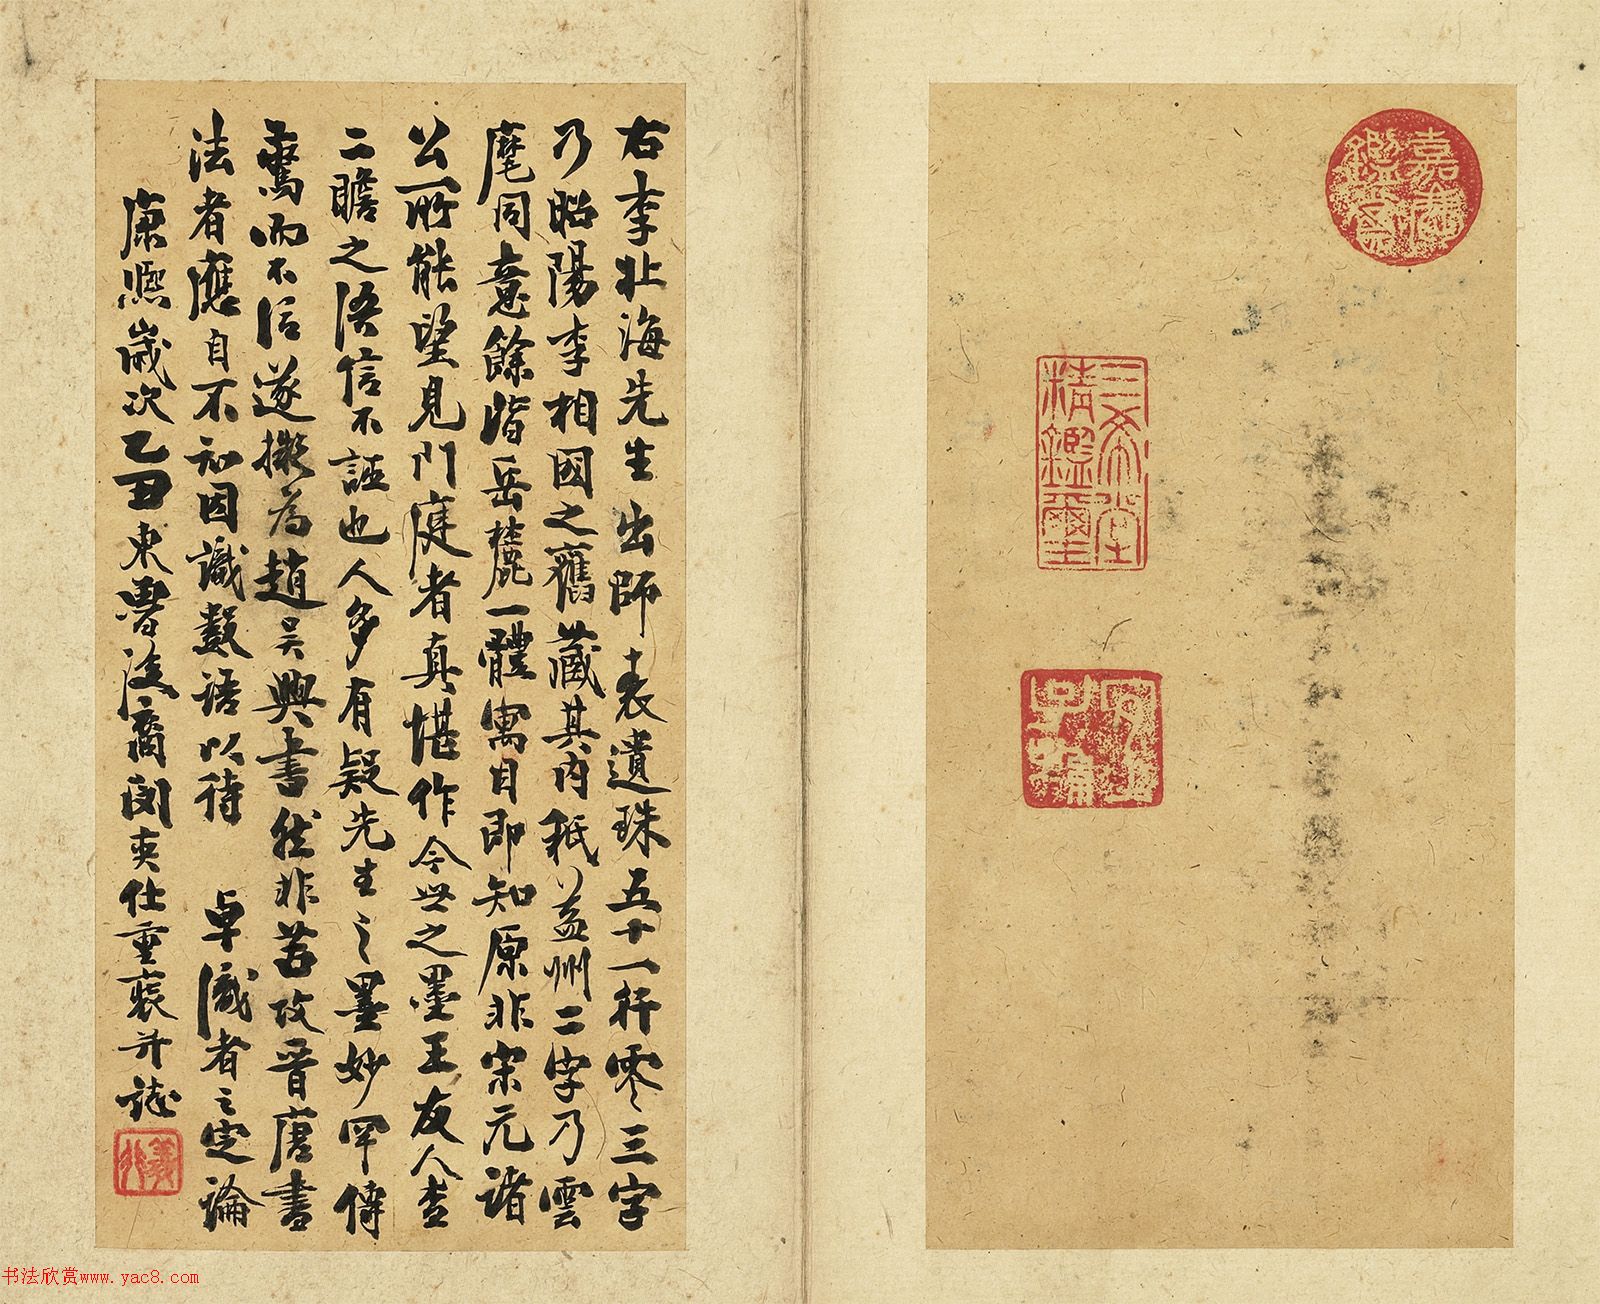 嘉慶鑑賞
三希堂
精鑑璽
宜
子孫
右李北海先生出師十表遺珠五十一行零三字
乃昭陽李相國之舊藏其內秖益州二字乃雲
麾同意餘皆岳麓一體寓目即知原非宋元諸
公所能望見門庭者真堪作今世之墨王友人查
二瞻之語信不誣也人多有疑先生之墨妙罕傳
驚而不信遂擬為趙吳興書然非苦攻晉唐書
法者應自不知因識數語以待 卓識者之定論
康熙歲次乙丑東魯後裔閔奕仕重裝并誌
書法欣赏www.yac8.com